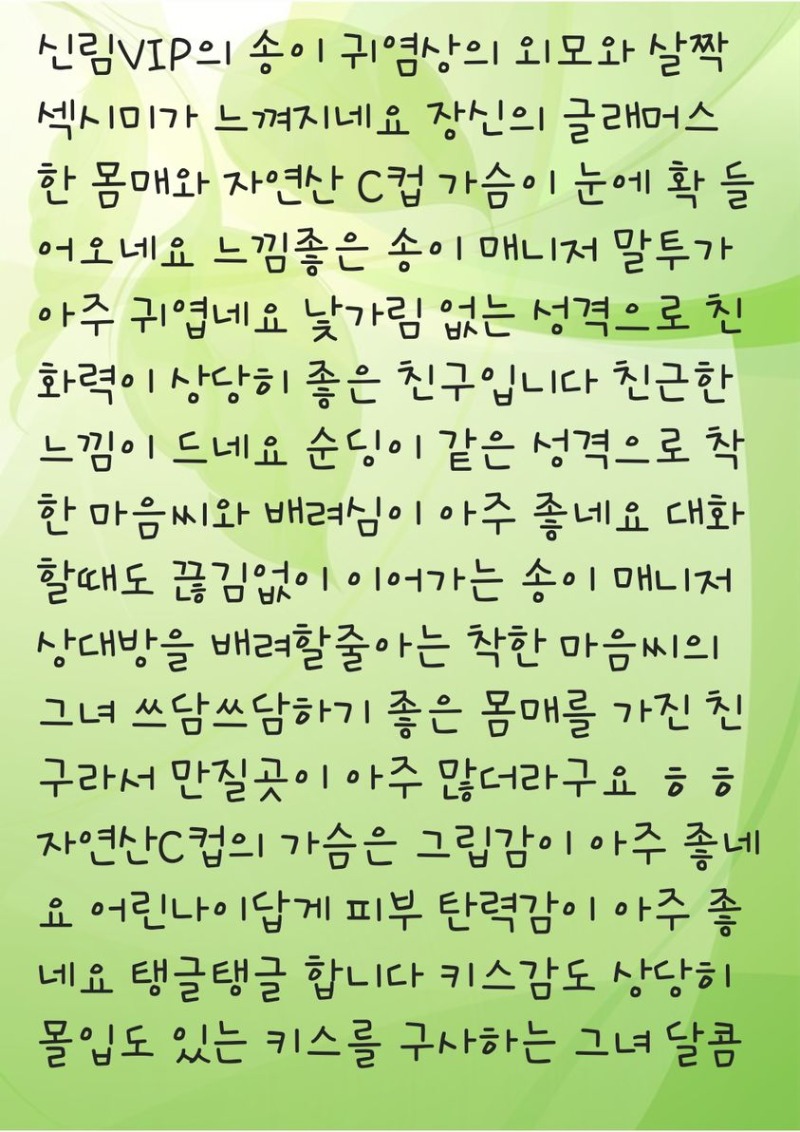 신림VIP의 송이 귀염상의 외모와 살짝
섹시미가 느껴지네요 장신의 글래머스
한 몸매와 자연산 C컵 가슴이 눈에 확 들
어오네요 느낌좋은 송이 매니저 말투가
아주 귀엽네요 낯가림 없는 성격으로 친
화력이 상당히 좋은 친구입니다 친근한
느낌이 드네요 순딩이 같은 성격으로 착
한 마음씨와 배려심이 아주 좋네요 대화
할때도 끊김없이 이어가는 송이 매니저
상대방을 배려할줄아는 착한 마음씨의
그녀 쓰담쓰담하기 좋은 몸매를 가진 친
구라서 만질곳이 아주 많더라구요 ㅎㅎ
자연산C컵의 가슴은 그립감이 아주 좋네
요 어린나이답게 피부 탄력감이 아주 좋
네요 탱글탱글 합니다 키스감도 상당히
몰입도 있는 키스를 구사하는 그녀 달콤